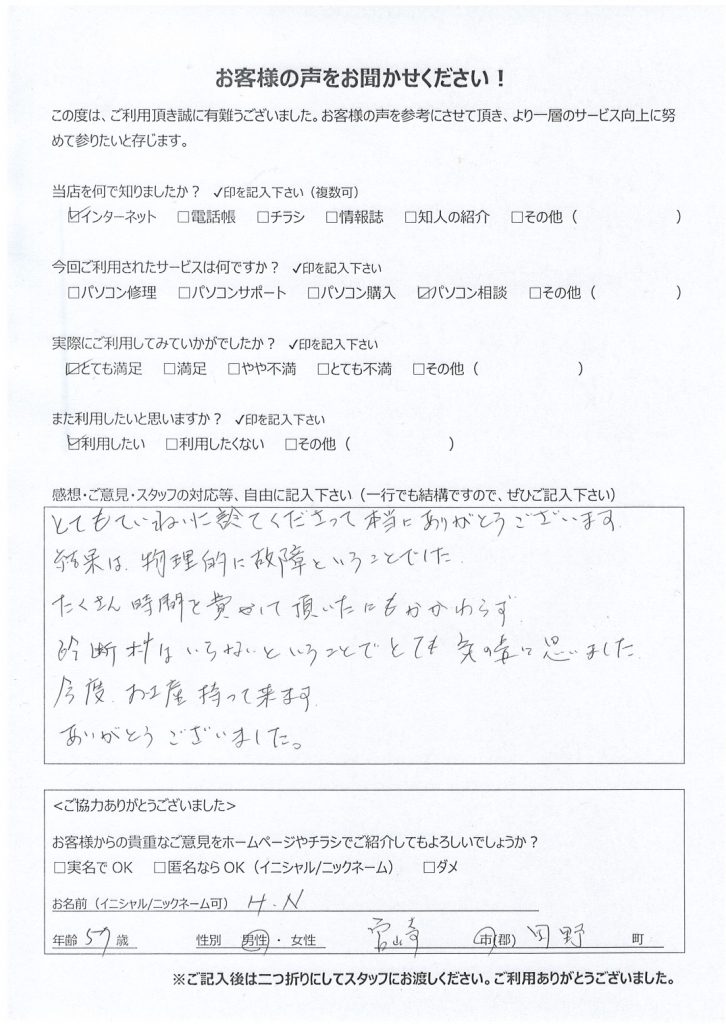 お客様の声をお聞かせください！
この度は、ご利用頂き誠に有難うございました。お客様の声を参考にさせて頂き、より一層のサービス向上に努
めて参りたいと存じます。
当店を何で知りましたか？ ✓印を記入下さい（複数可）
☑インターネット □電話帳 □チラシ □情報誌 □知人の紹介 □その他（ ）
今回ご利用されたサービスは何ですか？ ✓印を記入下さい
□パソコン修理 □パソコンサポート □パソコン購入 ☑パソコン相談 □その他（ ）
実際にご利用してみていかがでしたか？ ✓印を記入下さい
☑とても満足 □満足 □やや不満 □とても不満 □その他（ ）
また利用したいと思いますか？ ✓印を記入下さい
☑利用したい □利用したくない □その他（ ）
感想・ご意見・スタッフの対応等、自由に記入下さい（一行でも結構ですので、ぜひご記入下さい）
とてもていねいに診てくださって本当にありがとうございます.
結果は、物理的に故障ということでした.
たくさん時間を費やして頂いたにもかかわらず
診断料はいらないということでとても気の毒に思いました.
今度、お土産持って来ます.
ありがとうございました。
<ご協力ありがとうございました>
お客様からの貴重なご意見をホームページやチラシでご紹介してもよろしいでしょうか？
□実名でOK □匿名ならOK（イニシャル/ニックネーム） □ダメ
お名前（イニシャル/ニックネーム可） H.N
年齢 57 歳 性別 男性・女性 宮崎 市(郡) 田野 町
※ご記入後は二つ折りにしてスタッフにお渡しください。ご利用ありがとうございました。